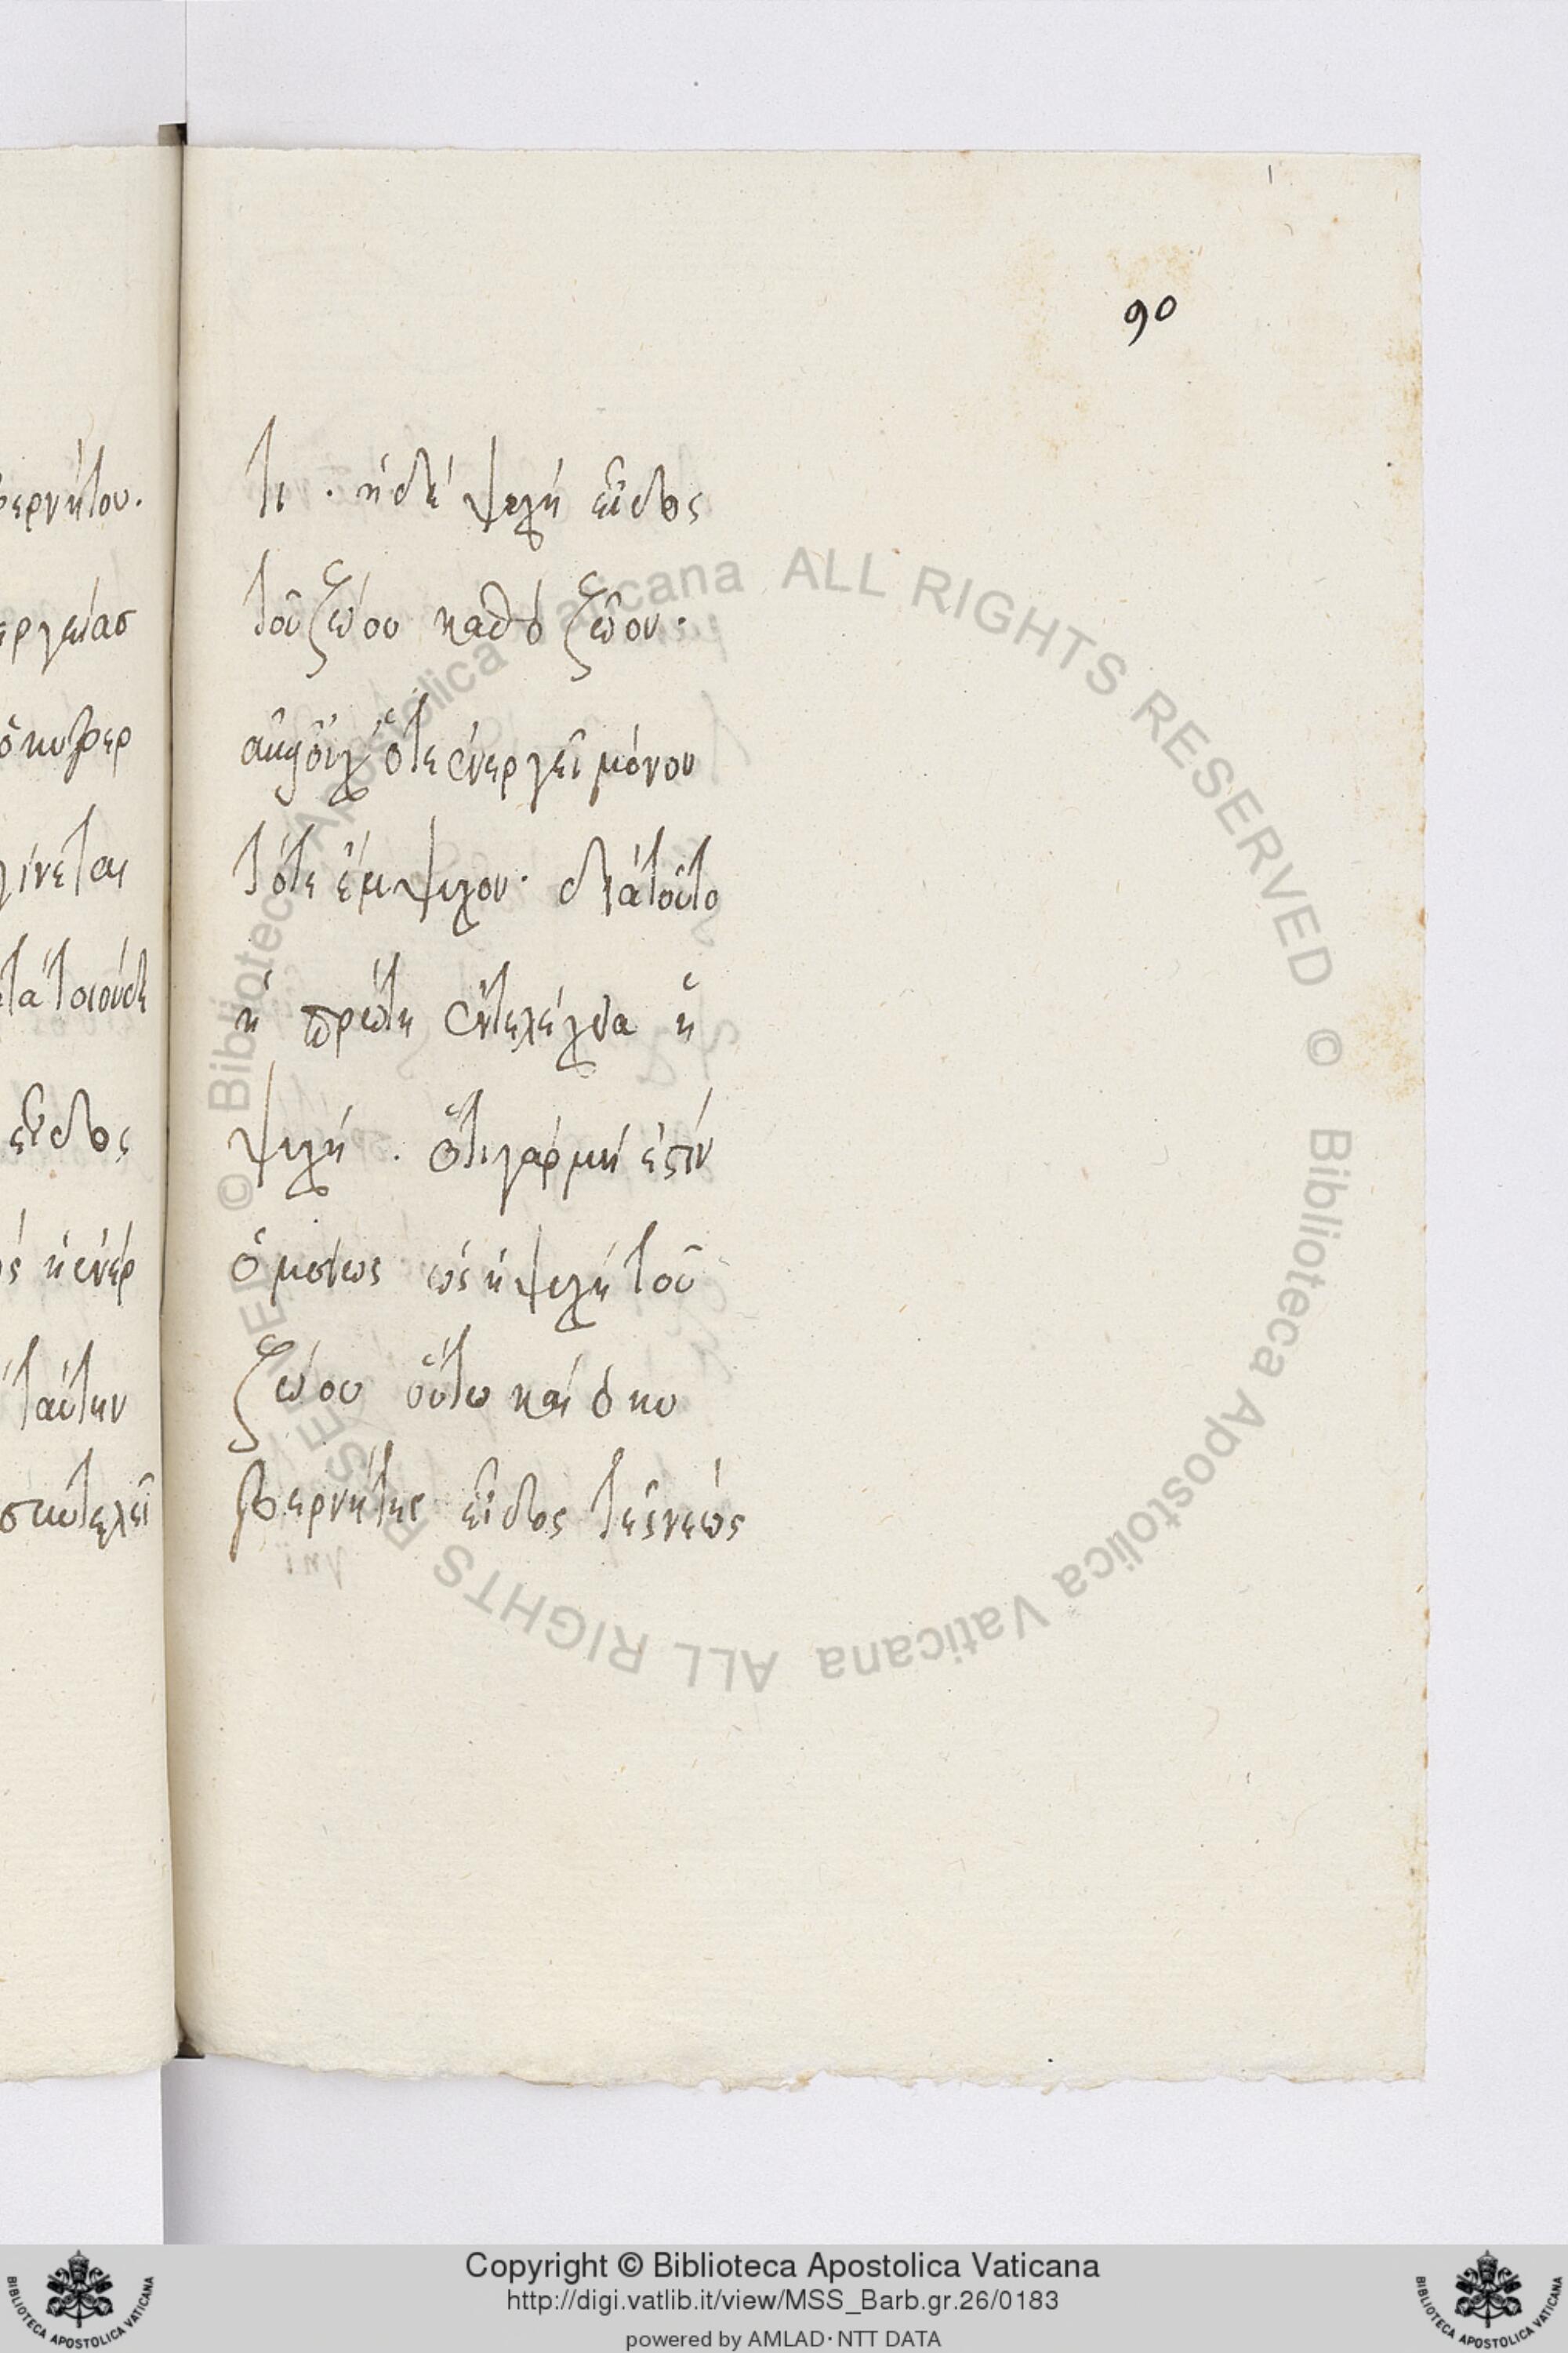 90
τι · ἡ δὲ ψυχὴ εἶδος
τοῦ ζώου καθὸ ζῶον·
οὐχ ὅτε ἐνεργεῖ μόνον
τότε ἔμψυχον· διὰ τοῦτο
ἡ πρώτη ἐντελέχεια ἡ
ψυχή · ὅτι γὰρ μή ἐστιν
ὁμοίως ὡς ἡ ψυχὴ τοῦ
ζώου οὕτω καὶ ὁ κυ
βερνήτης εἶδος τῆς νεώς
βερνήτου·
εργείασ
ὁ κυβερ
γίνεται
εἶδος
ἡ ἐνερ
ταύτην
© Biblioteca Apostolica Vaticana ALL RIGHTS RESERVED © Biblioteca Apostolica Vaticana ALL RIGHTS RESERVED
Copyright © Biblioteca Apostolica Vaticana
http://digi.vatlib.it/view/MSS_Barb.gr.26/0183
powered by AMLAD · NTT DATA
BIBLIOTECA APOSTOLICA VATICANA
BIBLIOTECA APOSTOLICA VATICANA